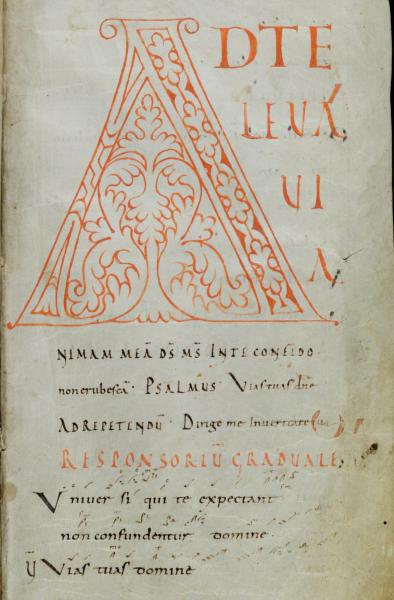 AD TE
LEUA
UI
A
NIMAM MEĀ D̄S M̄S IN TE CONFIDO
non erubescā · PSALMUS · Vias tuas dñe
AD REPETENDŪ · Dirige me In ueritate tua
RESPONSORIŪ GRADUALE
Vniuer si qui te expectant
non confundentur domine
V̄ Vias tuas domine